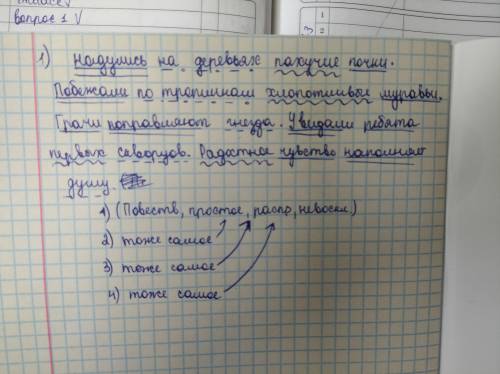 вопрос 1 V
1
2
3
1) Надулись на деревьях пахучие почки.
Побежали по тропинкам хлопотливые муравьи.
Грачи поправляют гнезда. Увидали ребята
первых скворцов. Радостное чувство наполняет
душу.
1) (Повеств, простое, распр, невоскл.)
2) тоже самое
3) тоже самое
4) тоже самое